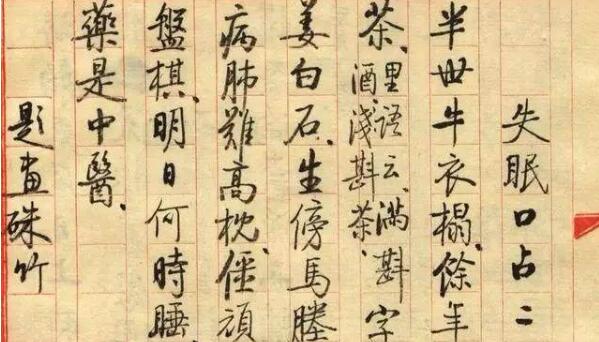 失眠口占二
半世牛衣榻、餘年
茶、里語云、滿斟酒淺斟茶、字
姜白石、生傍馬塍
病肺難高枕、頑
盤棋、明日何時睡
藥是中醫、
題畫硃竹